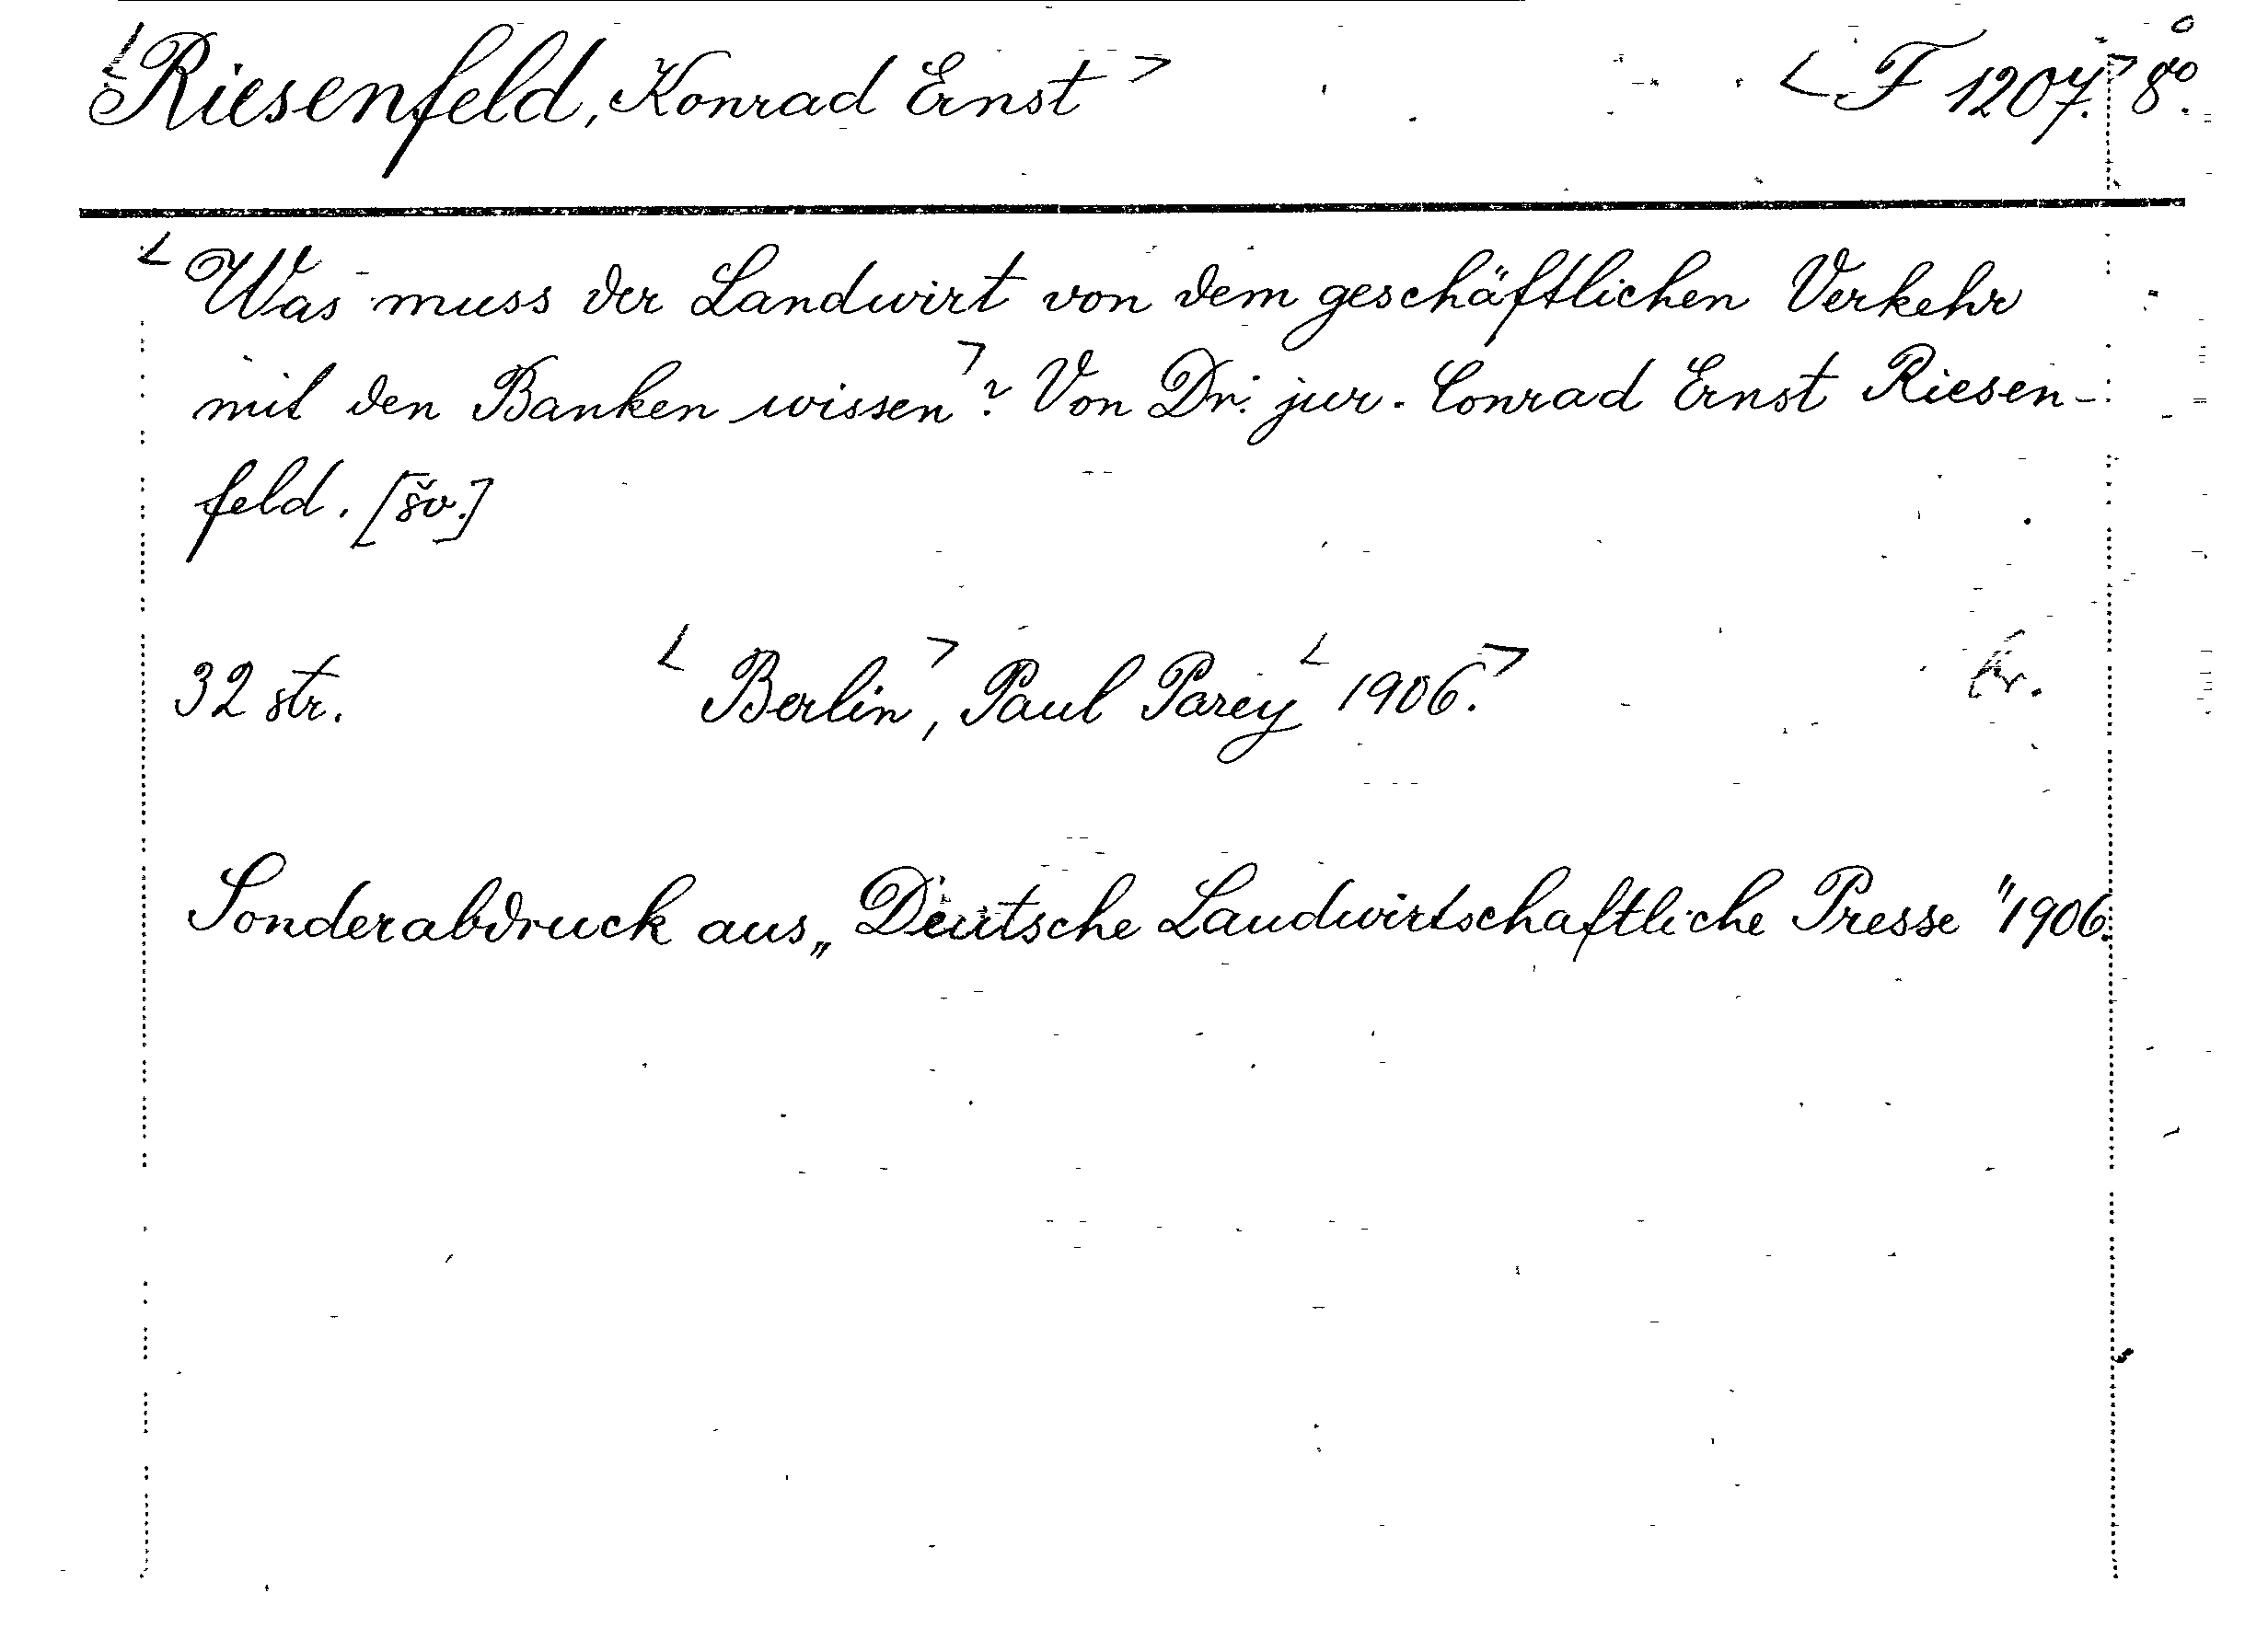 <Riesenfeld, Konrad Ernst> <F 1207.> 8º.
<Was muss der Landwirt von dem geschäftlichen Verkehr
mit den Banken wissen>? Von Dr. jur. Conrad Ernst Riesen-
feld. [šv.]
32 str. <Berlin>, Paul Parey <1906.> kr.
Sonderabdruck aus „Deutsche Landwirtschaftliche Presse" 1906.